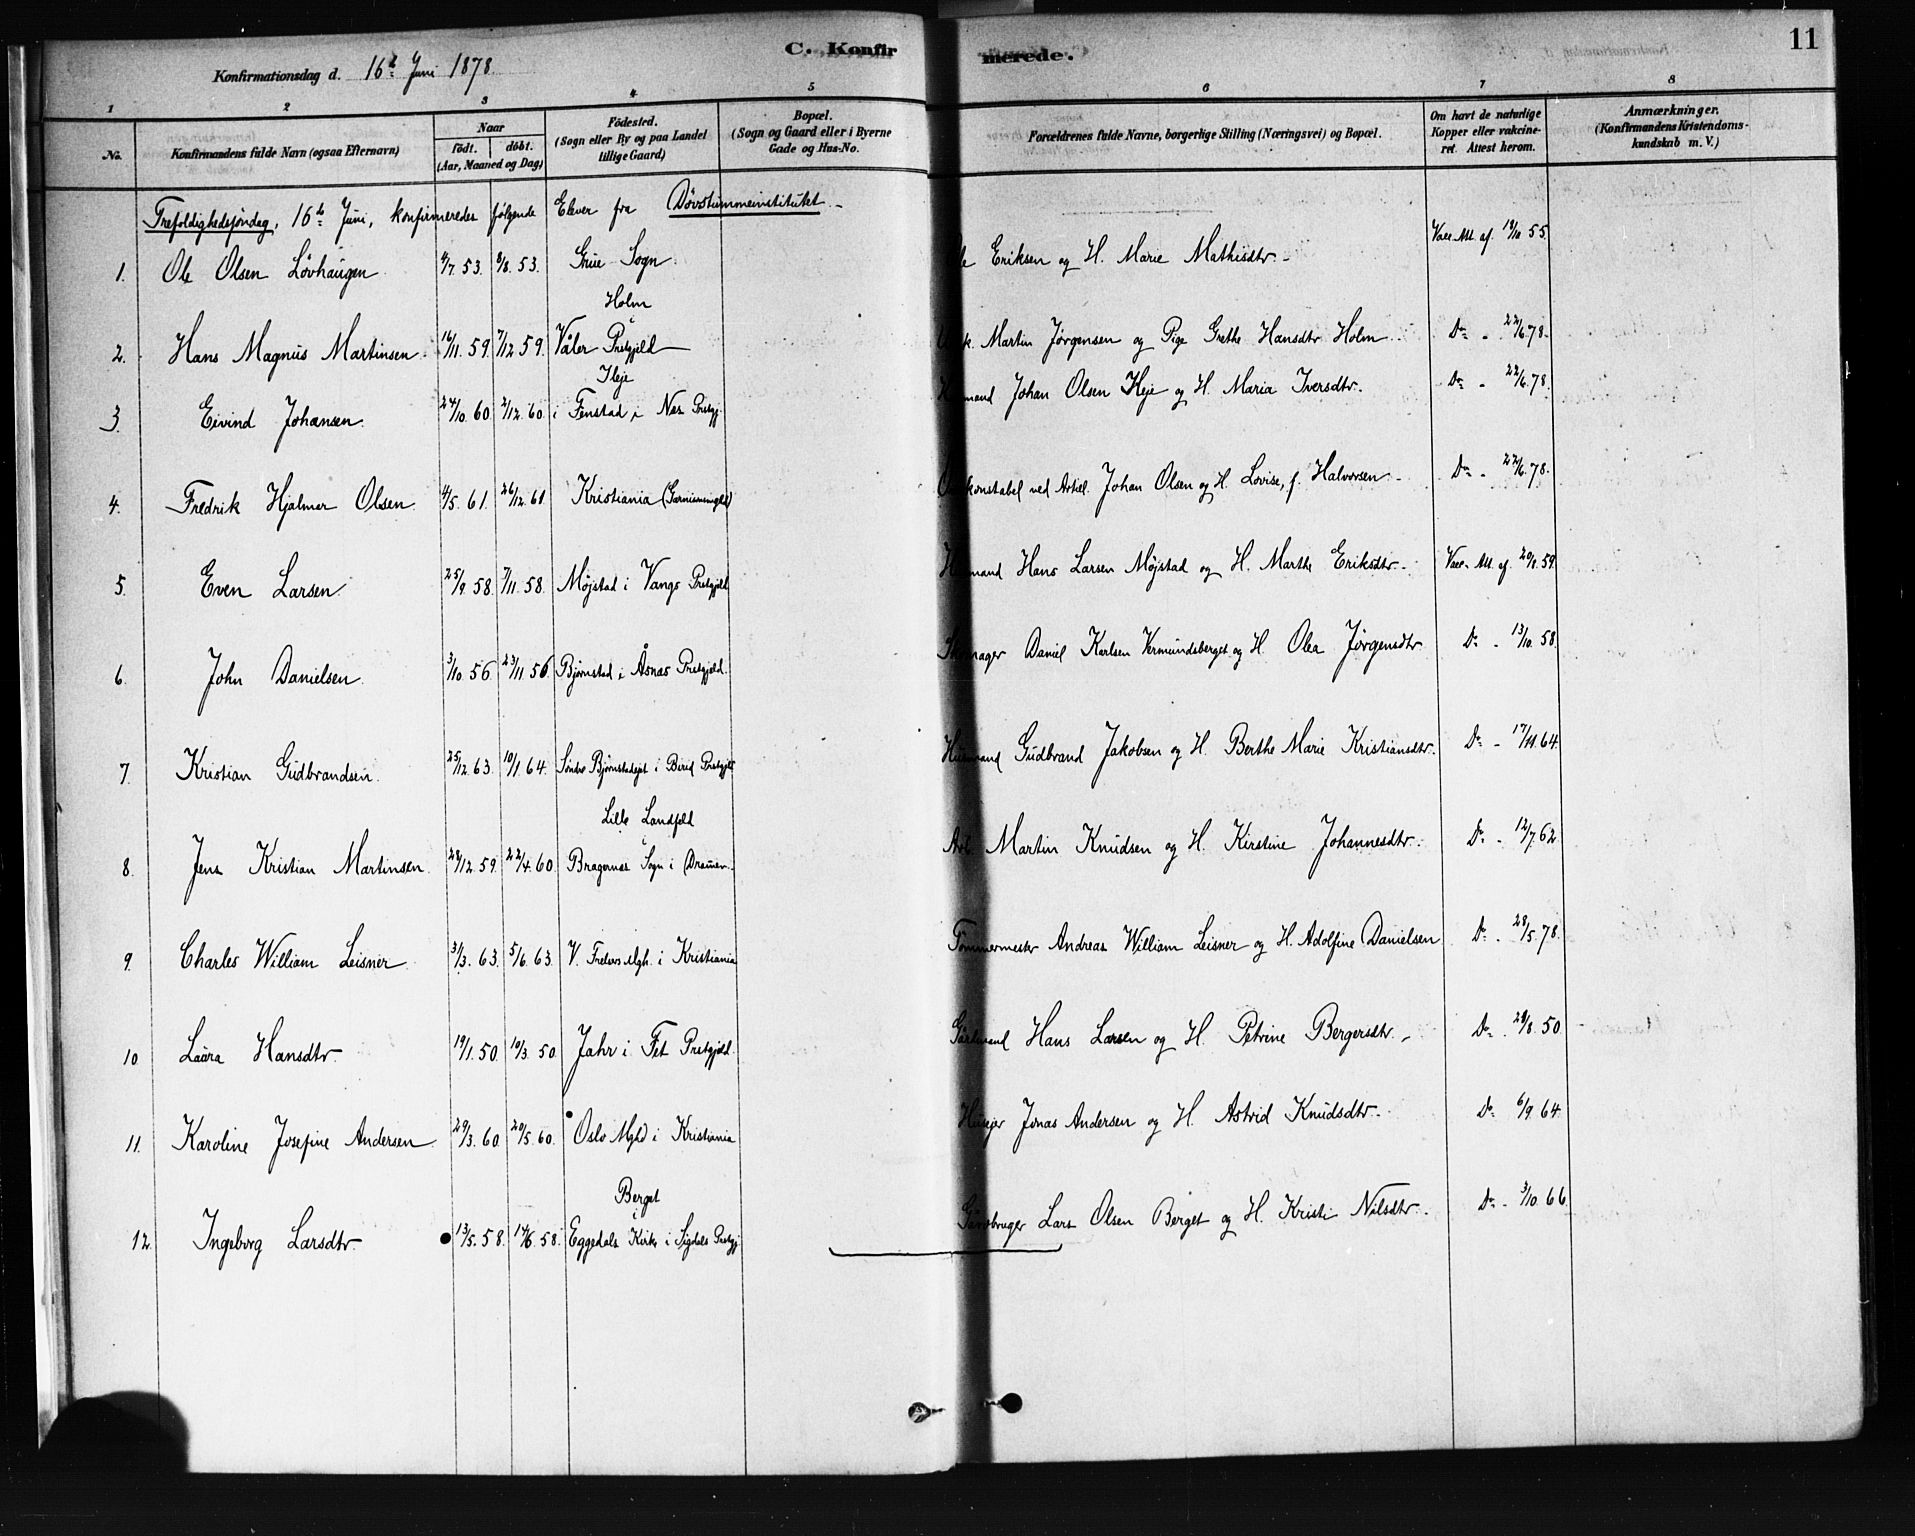 11
C. Konfirmerede.
Konfirmationsdag d. 16de Juni 1878.
1 2 3 4 5 6 7 8
No.
Konfirmandens fulde Navn (ogsaa Efternavn)
Naar
födt. döbt.
(Aar, Maaned og Dag)
Födested.
(Sogn eller By og paa Landet
tillige Gaard)
Bopæl.
(Sogn og Gaard eller i Byerne
Gade og Hus-No.
Forældrenes fulde Navne, borgerlige Stilling (Næringsvei) og Bopæl.
Om havt de naturlige
Kopper eller vakcine-
ret. Attest herom.
Anmærkninger.
(Konfirmandens Kristendoms-
kundskab m. V.)
Trefoldighedssöndag, 16de Juni, konfirmeredes følgende Elever fra Døvstummeinstitutet.-
1. Ole Olsen Lövhaugen 4/7. 53. 8/8. 53. Grue Sogn Eriksen og H. Marie Mathisdtr.- Vacc. Att. af. 19/10 55.
Holm
i
2. Hans Magnus Martinsen 16/11. 59. 7/12 59. Våler Prstgjeld Martin Jörgensen og Pige Grethe Hansdtr Holm. Do - 22/6. 78.
Ileje
3. Eivind Johansen 24/10. 60. 2/12. 60. i Fenstad i Nes Prstgj. Johan Olsen Ileje og H. Maria Iversdtr. Do - 22/6. 78.
4. Fredrik Hjalmar Olsen 4/5. 61. 26/12. 61 Kristiania (Garnisonmgld) ved Artiel. Johan Olsen og H. Lovise, f. Halvorsen - Do - 22/6. 78.
5. Even Larsen 25/9. 58. 7/11. 58. Møjstad i Vangs Prstgjeld Husmand Hans Larsen Møjstad og H. Marthe Eriksdtr.- Vacc. Att. af. 20/8. 59.
6. John Danielsen 3/10. 56. 23/11. 56. Bjørnstad i Åsnæs Prstgjeld. Skomager Daniel Karlsen Vermundsberget og H. Olea Jörgensdtr Do - 13/10. 58.
7. Kristian Gudbrandsen 25/12. 63. 10/1. 64. Søndre Bjørnstadejet i Birid Prstgjeld Husmand Gudbrand Jakobsen og H. Berthe Marie Kristiansdtr. Do - 17/11. 64.
Lille Landfeld
i
8. Jens Kristian Martinsen 22/12. 59. 22/4. 60. Bragernæs Sogn i Drammen. Arb. Martin Knudsen og H. Kirstine Johannesdtr. Do - 12/7 62
9. Charles William Leisner 3/3. 63. 5/6. 63. V. Frelsrs Mgh. i Kristiania Tømmermester Andreas William Leisner og H. Adolfine Danielsen Do - 28/5. 78.
10 Laura Hansdtr. 19/1. 50. 10/3. 50. Jahr i Fet Prstgjeld. Hans Larsen og H. Petrine Bergersdtr. Do - 29/8. 50
11. Karoline Josefine Andersen 29/3. 60. 20/5. 60. Oslo Mgld i Kristiania Husejer Jonas Andersen og H. Astrid Knudsdtr. Do - 6/9. 64.
Berget
i
12. Ingeborg Larsdtr. 13/5. 58. 14/6. 58. Eggedals Kirke i Sigdals Prstgj. Gårdbruger Lars Olsen Berget og H. Kristi Nilsdtr. Do - 3/10. 66.